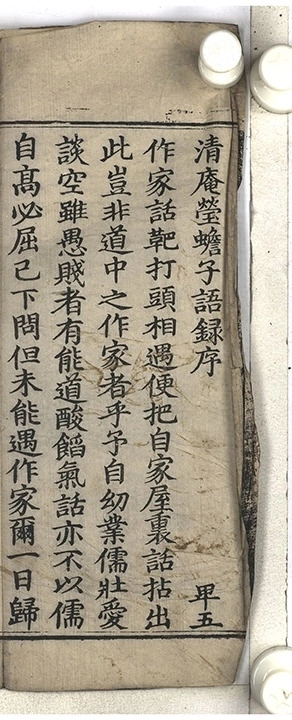 清庵瑩蟾子語録序 甲五
作家話靶打頭相遇便把自家屋裏話拈出
此豈非道中之作家者乎予自幼業儒壯愛
談空雖愚賤者有能道酸餡氣話亦不以儒
自髙必屈己下問但未能遇作家爾一日歸